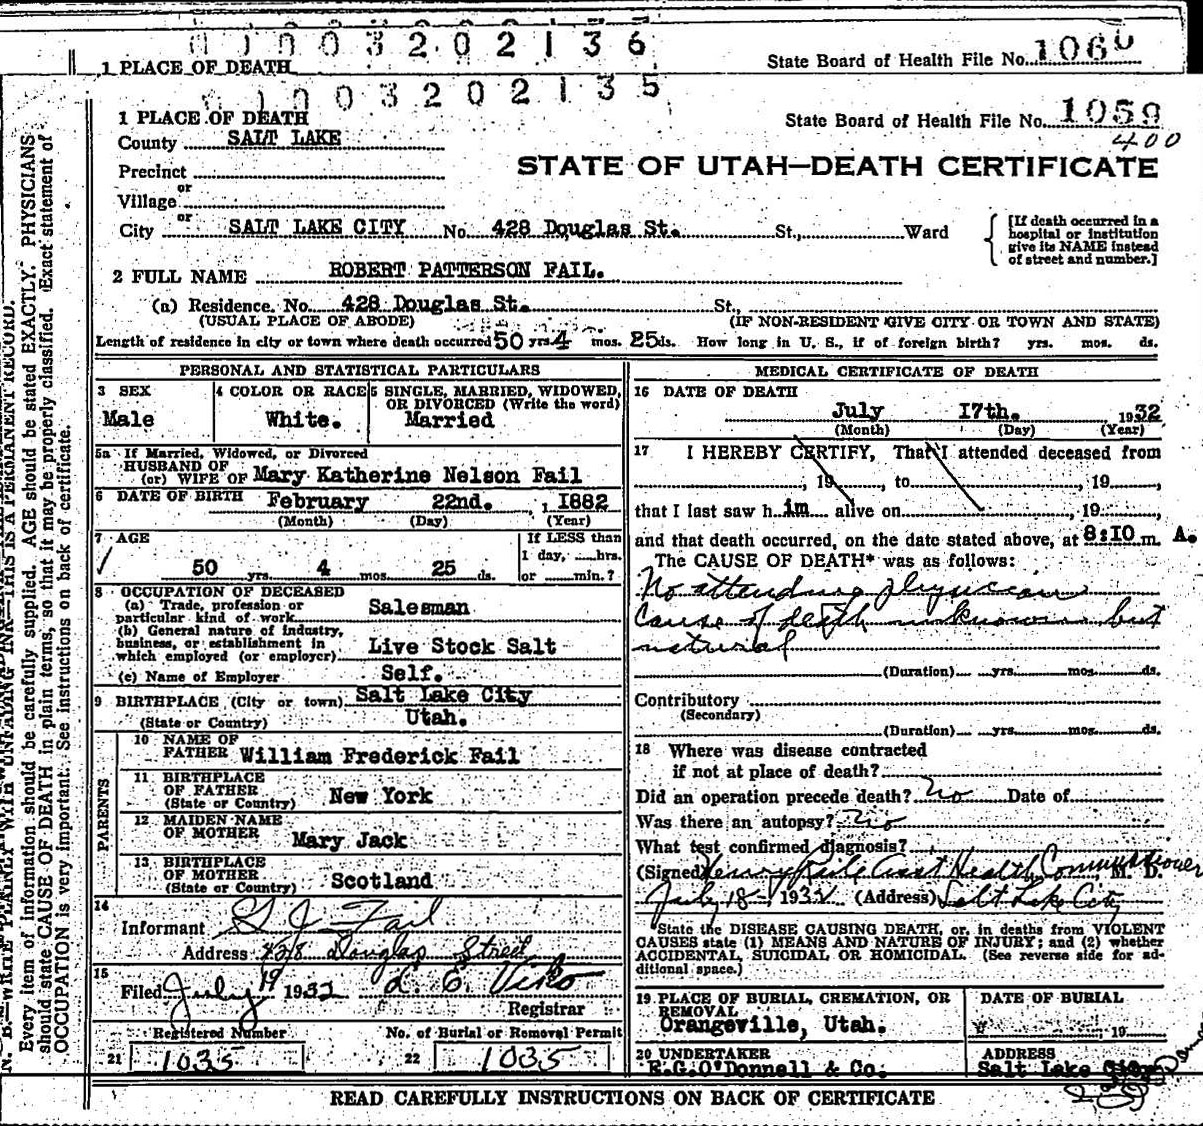 01003202136
State Board of Health File No. 1060
1 PLACE OF DEATH
01003202135
1 PLACE OF DEATH
State Board of Health File No. 1059
400
County SALT LAKE
STATE OF UTAH—DEATH CERTIFICATE
Precinct
or
Village
or
City SALT LAKE CITY No. 428 Douglas St. St., Ward
[If death occurred in a hospital or institution give its NAME instead of street and number.]
2 FULL NAME ROBERT PATTERSON FAIL.
(a) Residence. No. 428 Douglas St. St.,
(USUAL PLACE OF ABODE) (IF NON-RESIDENT GIVE CITY OR TOWN AND STATE)
Length of residence in city or town where death occurred 50 yrs. 4 mos. 25 ds. How long in U. S., if of foreign birth? yrs. mos. ds.
PERSONAL AND STATISTICAL PARTICULARS
3 SEX
Male
4 COLOR OR RACE
White.
5 SINGLE, MARRIED, WIDOWED,
OR DIVORCED (Write the word)
Married
5a If Married, Widowed, or Divorced
HUSBAND OF
(or) WIFE OF Mary Katherine Nelson Fail
6 DATE OF BIRTH February 22nd. , 1 1882
(Month) (Day) (Year)
7 AGE
50 yrs. 4 mos. 25 ds.
If LESS than
1 day, hrs.
or min.?
8 OCCUPATION OF DECEASED
(a) Trade, profession or
particular kind of work Salesman
(b) General nature of industry,
business, or establishment in
which employed (or employer) Live Stock Salt
(c) Name of Employer Self.
9 BIRTHPLACE (City or town) Salt Lake City
(State or Country) Utah.
PARENTS
10 NAME OF
FATHER William Frederick Fail
11 BIRTHPLACE
OF FATHER
(State or Country) New York
12 MAIDEN NAME
OF MOTHER Mary Jack
13 BIRTHPLACE
OF MOTHER
(State or Country) Scotland
14
Informant J. Fail
Address 428 Douglas Street
15
Filed July 19 1932 L. E. Viko
Registrar
Registered Number No. of Burial or Removal Permit
21 1035 22 1035
MEDICAL CERTIFICATE OF DEATH
16 DATE OF DEATH
July 17th. 1932
(Month) (Day) (Year)
17 I HEREBY CERTIFY, That I attended deceased from
, 19 , to , 19 ,
that I last saw h im alive on , 19 ,
and that death occurred, on the date stated above, at 8:10 m. A.
The CAUSE OF DEATH* was as follows:
No attending physician
Cause of death unknown but
natural
(Duration) yrs. mos. ds.
Contributory
(Secondary)
(Duration) yrs. mos. ds.
18 Where was disease contracted
if not at place of death?
Did an operation precede death? No Date of
Was there an autopsy? No
What test confirmed diagnosis?
(Signed) Henry Health Commissioner M. D.
July 18 - 1932 (Address) Salt Lake City
State the DISEASE CAUSING DEATH, or, in deaths from VIOLENT
CAUSES state (1) MEANS AND NATURE OF INJURY; and (2) whether
ACCIDENTAL, SUICIDAL OR HOMICIDAL. (See reverse side for ad-
ditional space.)
19 PLACE OF BURIAL, CREMATION, OR
REMOVAL
Orangeville, Utah.
DATE OF BURIAL
19
20 UNDERTAKER
E.G.O'Donnell & Co.
ADDRESS
Salt Lake City
READ CAREFULLY INSTRUCTIONS ON BACK OF CERTIFICATE
N. B.—WRITE PLAINLY WITH UNFADING INK—THIS IS A PERMANENT RECORD.
Every item of information should be carefully supplied. AGE should be stated EXACTLY. PHYSICIANS
should state CAUSE OF DEATH in plain terms, so that it may be properly classified. Exact statement of
OCCUPATION is very important. See instructions on back of certificate.